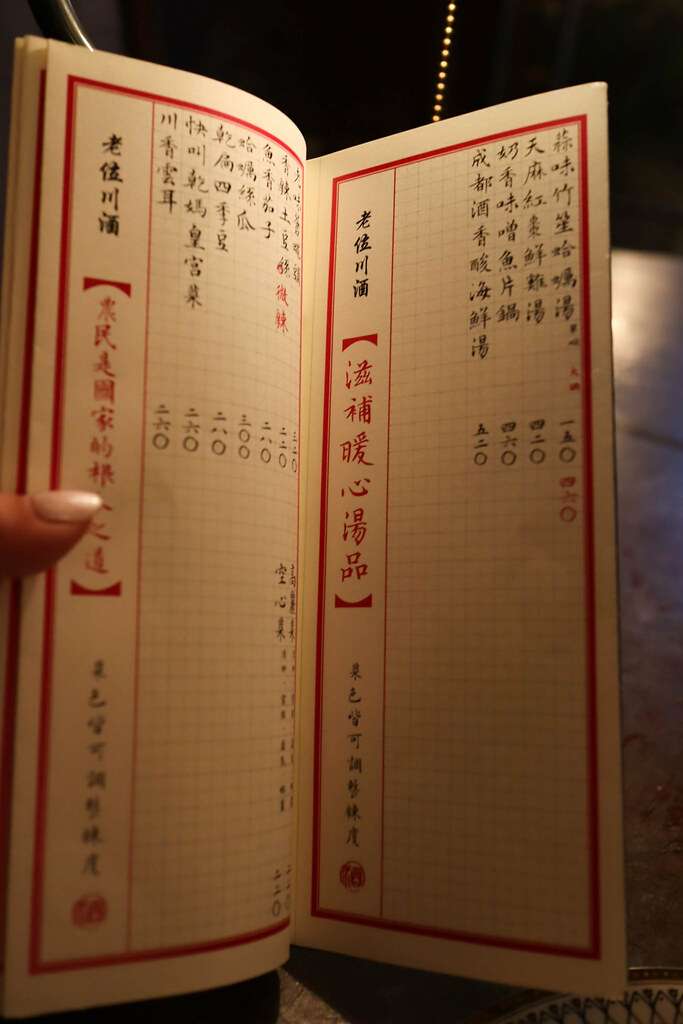 蒜味竹笙蛤蠣湯 單碗 大鍋 一五〇 四六〇
天麻紅棗鮮雞湯 四二〇
奶香味噌魚片鍋 四六〇
成都酒香酸海鮮湯 五二〇
老位川酒
【滋補暖心湯品】
菜色皆可調整辣度
三二〇
香辣土豆絲 微辣 二二〇
空心菜 二二〇
魚香茄子 二八〇
蛤蠣絲瓜 三〇〇
乾扁四季豆 二八〇
快叫乾媽皇宮菜 二六〇
川香雲耳 二六〇
老位川酒
【農民是國家的根 之道】
菜色皆可調整辣度